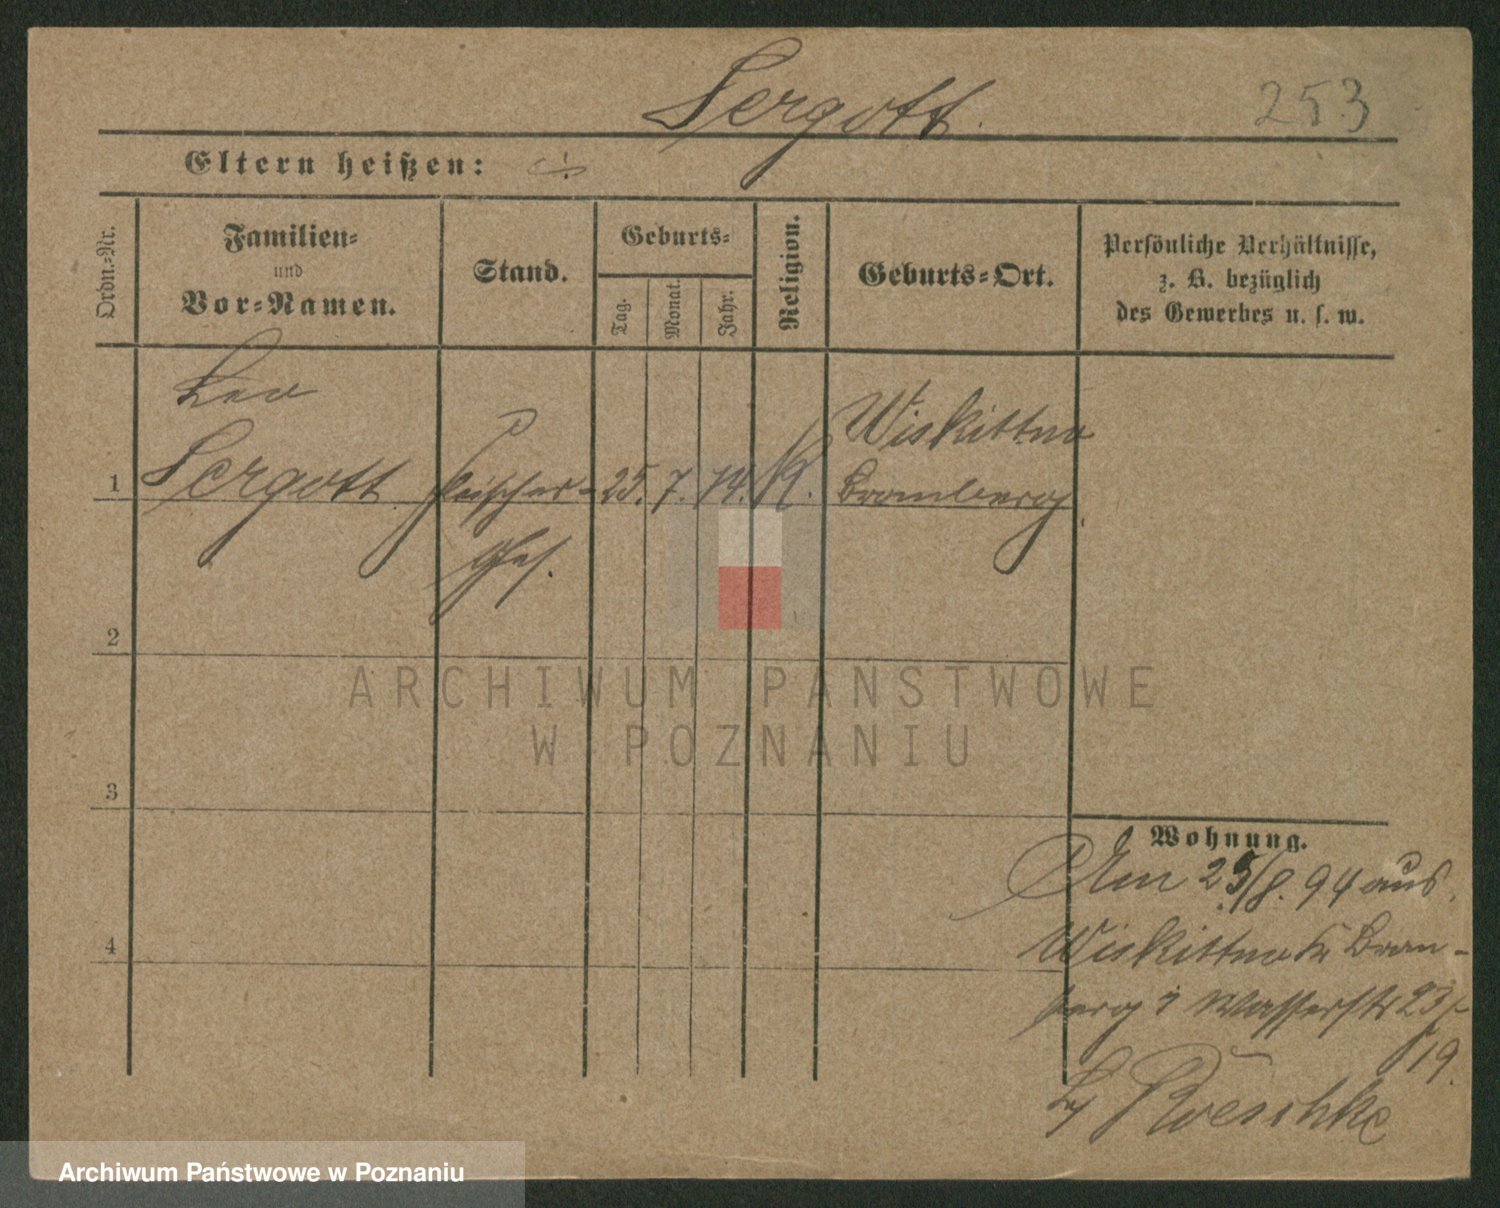 Sergott.
253
Eltern heißen:
Ordn.-Nr.
Familien-
und
Vor-Namen.
Stand.
Geburts-
Tag.
Monat.
Jahr.
Religion.
Geburts-Ort.
Persönliche Verhältnisse,
z. B. bezüglich
des Gewerbes u. s. w.
Leo
Sergott
1
Fleischer-
Ges.
25. 7. 74. K.
Wiskittno
Bromberg
2
3
4
Wohnung.
Am 25/8. 94 aus
Wiskittno Kr Brom-
berg Wasserstr 23
19.
by Roeschke
ARCHIWUM PAŃSTWOWE
W POZNANIU
Archiwum Państwowe w Poznaniu